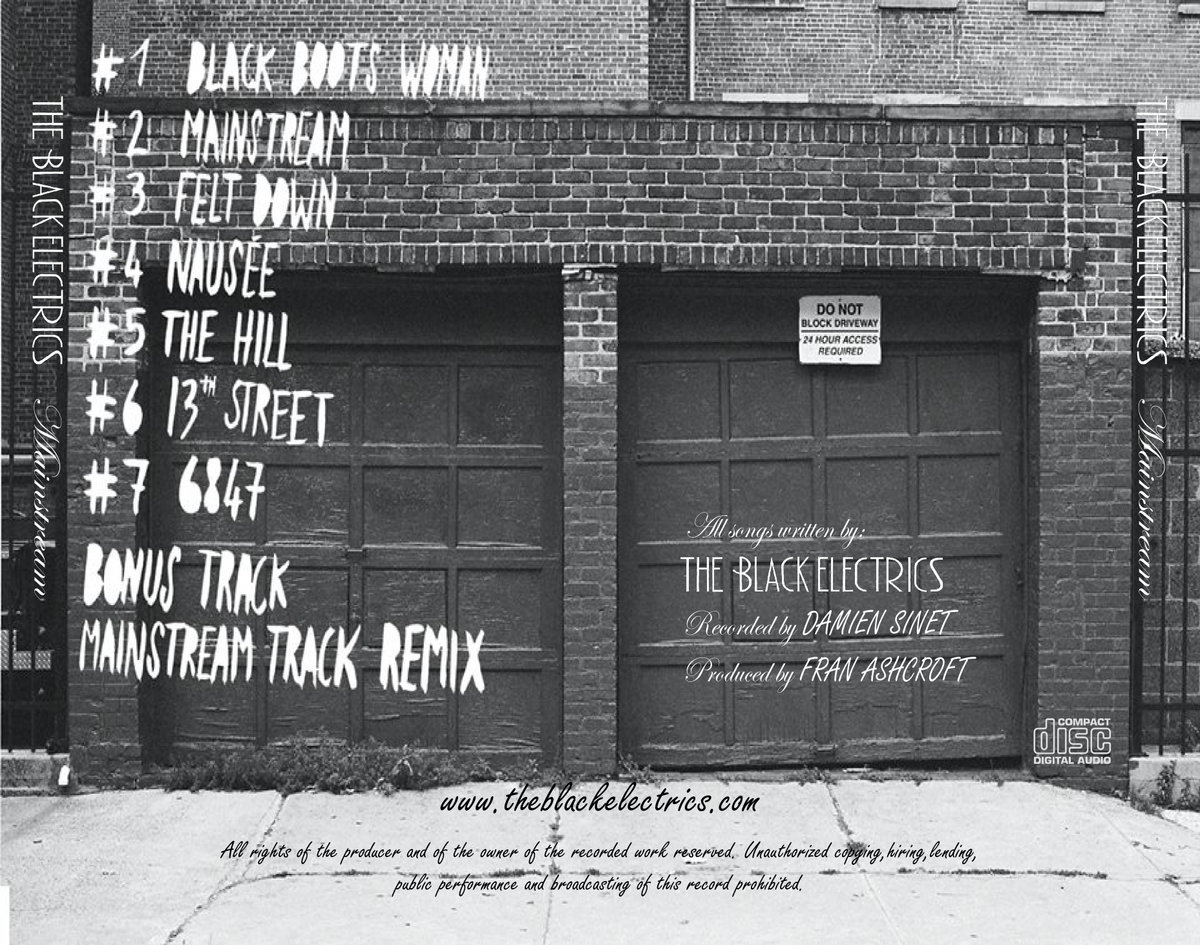 #1 BLACK BOOTS WOMAN
#2 MAINSTREAM
#3 FELT DOWN
#4 NAUSÉE
#5 THE HILL
#6 13TH STREET
#7 6847
BONUS TRACK
MAINSTREAM TRACK REMIX
THE BLACK ELECTRICS Mainstream
THE BLACK ELECTRICS Mainstream
DO NOT
BLOCK DRIVEWAY
24 HOUR ACCESS
REQUIRED
All songs written by:
THE BLACK ELECTRICS
Recorded by DAMIEN SINET
Produced by FRAN ASHCROFT
COMPACT
disc
DIGITAL AUDIO
www.theblackelectrics.com
All rights of the producer and of the owner of the recorded work reserved. Unauthorized copying,hiring,lending,
public performance and broadcasting of this record prohibited.